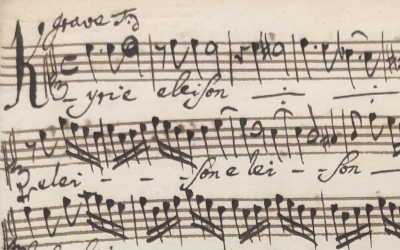 grave
Kyrie eleison
elei - - - son elei - - son